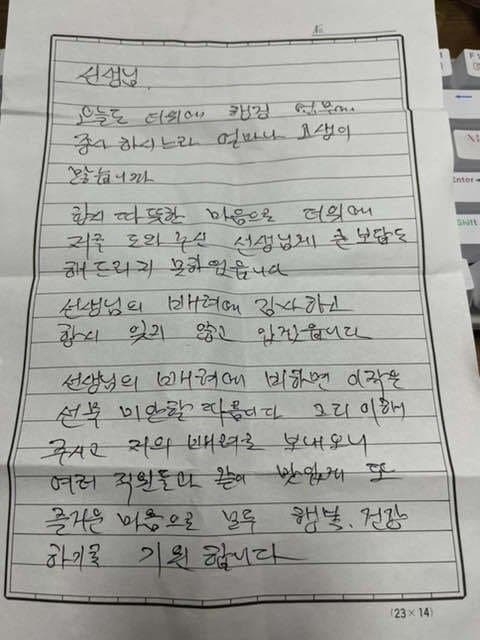 No
선생님.
오늘도 더위에 행정 업무에
종사 하시느라 얼마나 고생이
많습니까
항시 따뜻한 마음으로 더위에
저를 도와 주신 선생님께 큰 보답도
해 드리지 못하였읍니다
선생님의 배려에 감사하고
항시 잊지 않고 있겠읍니다
선생님의 배려에 비하면 이작은
선물 미안할 따름이다 그리 이해
주시고 저의 배려를 보내오니
여러 직원들과 같이 맛있게 또
즐거운 마음으로 모두 행복. 건강
하기를 기원 합니다
(23×14)
Enter
Shift